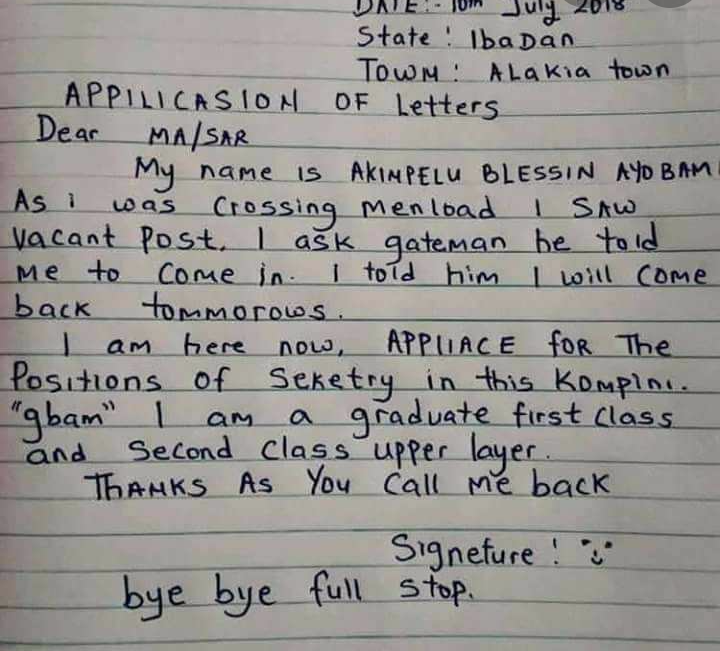 DATE:- 10th July 2018
State : IbaDan
TOWN : ALakia town
APPILICASION OF Letters
Dear MA/SAR
My name is AKINPELU BLESSIN AYOBAMI
As i was Crossing menload I SAW
Vacant Post. I ask gateman he told
me to Come in. I told him I will Come
back tommorows.
I am here now, APPLIACE foR The
Positions of Seketry in this Kompini.
"gbam" I am a graduate first class
and Second Class upper layer.
THANKS AS You Call me back
Signeture :
bye bye full stop.